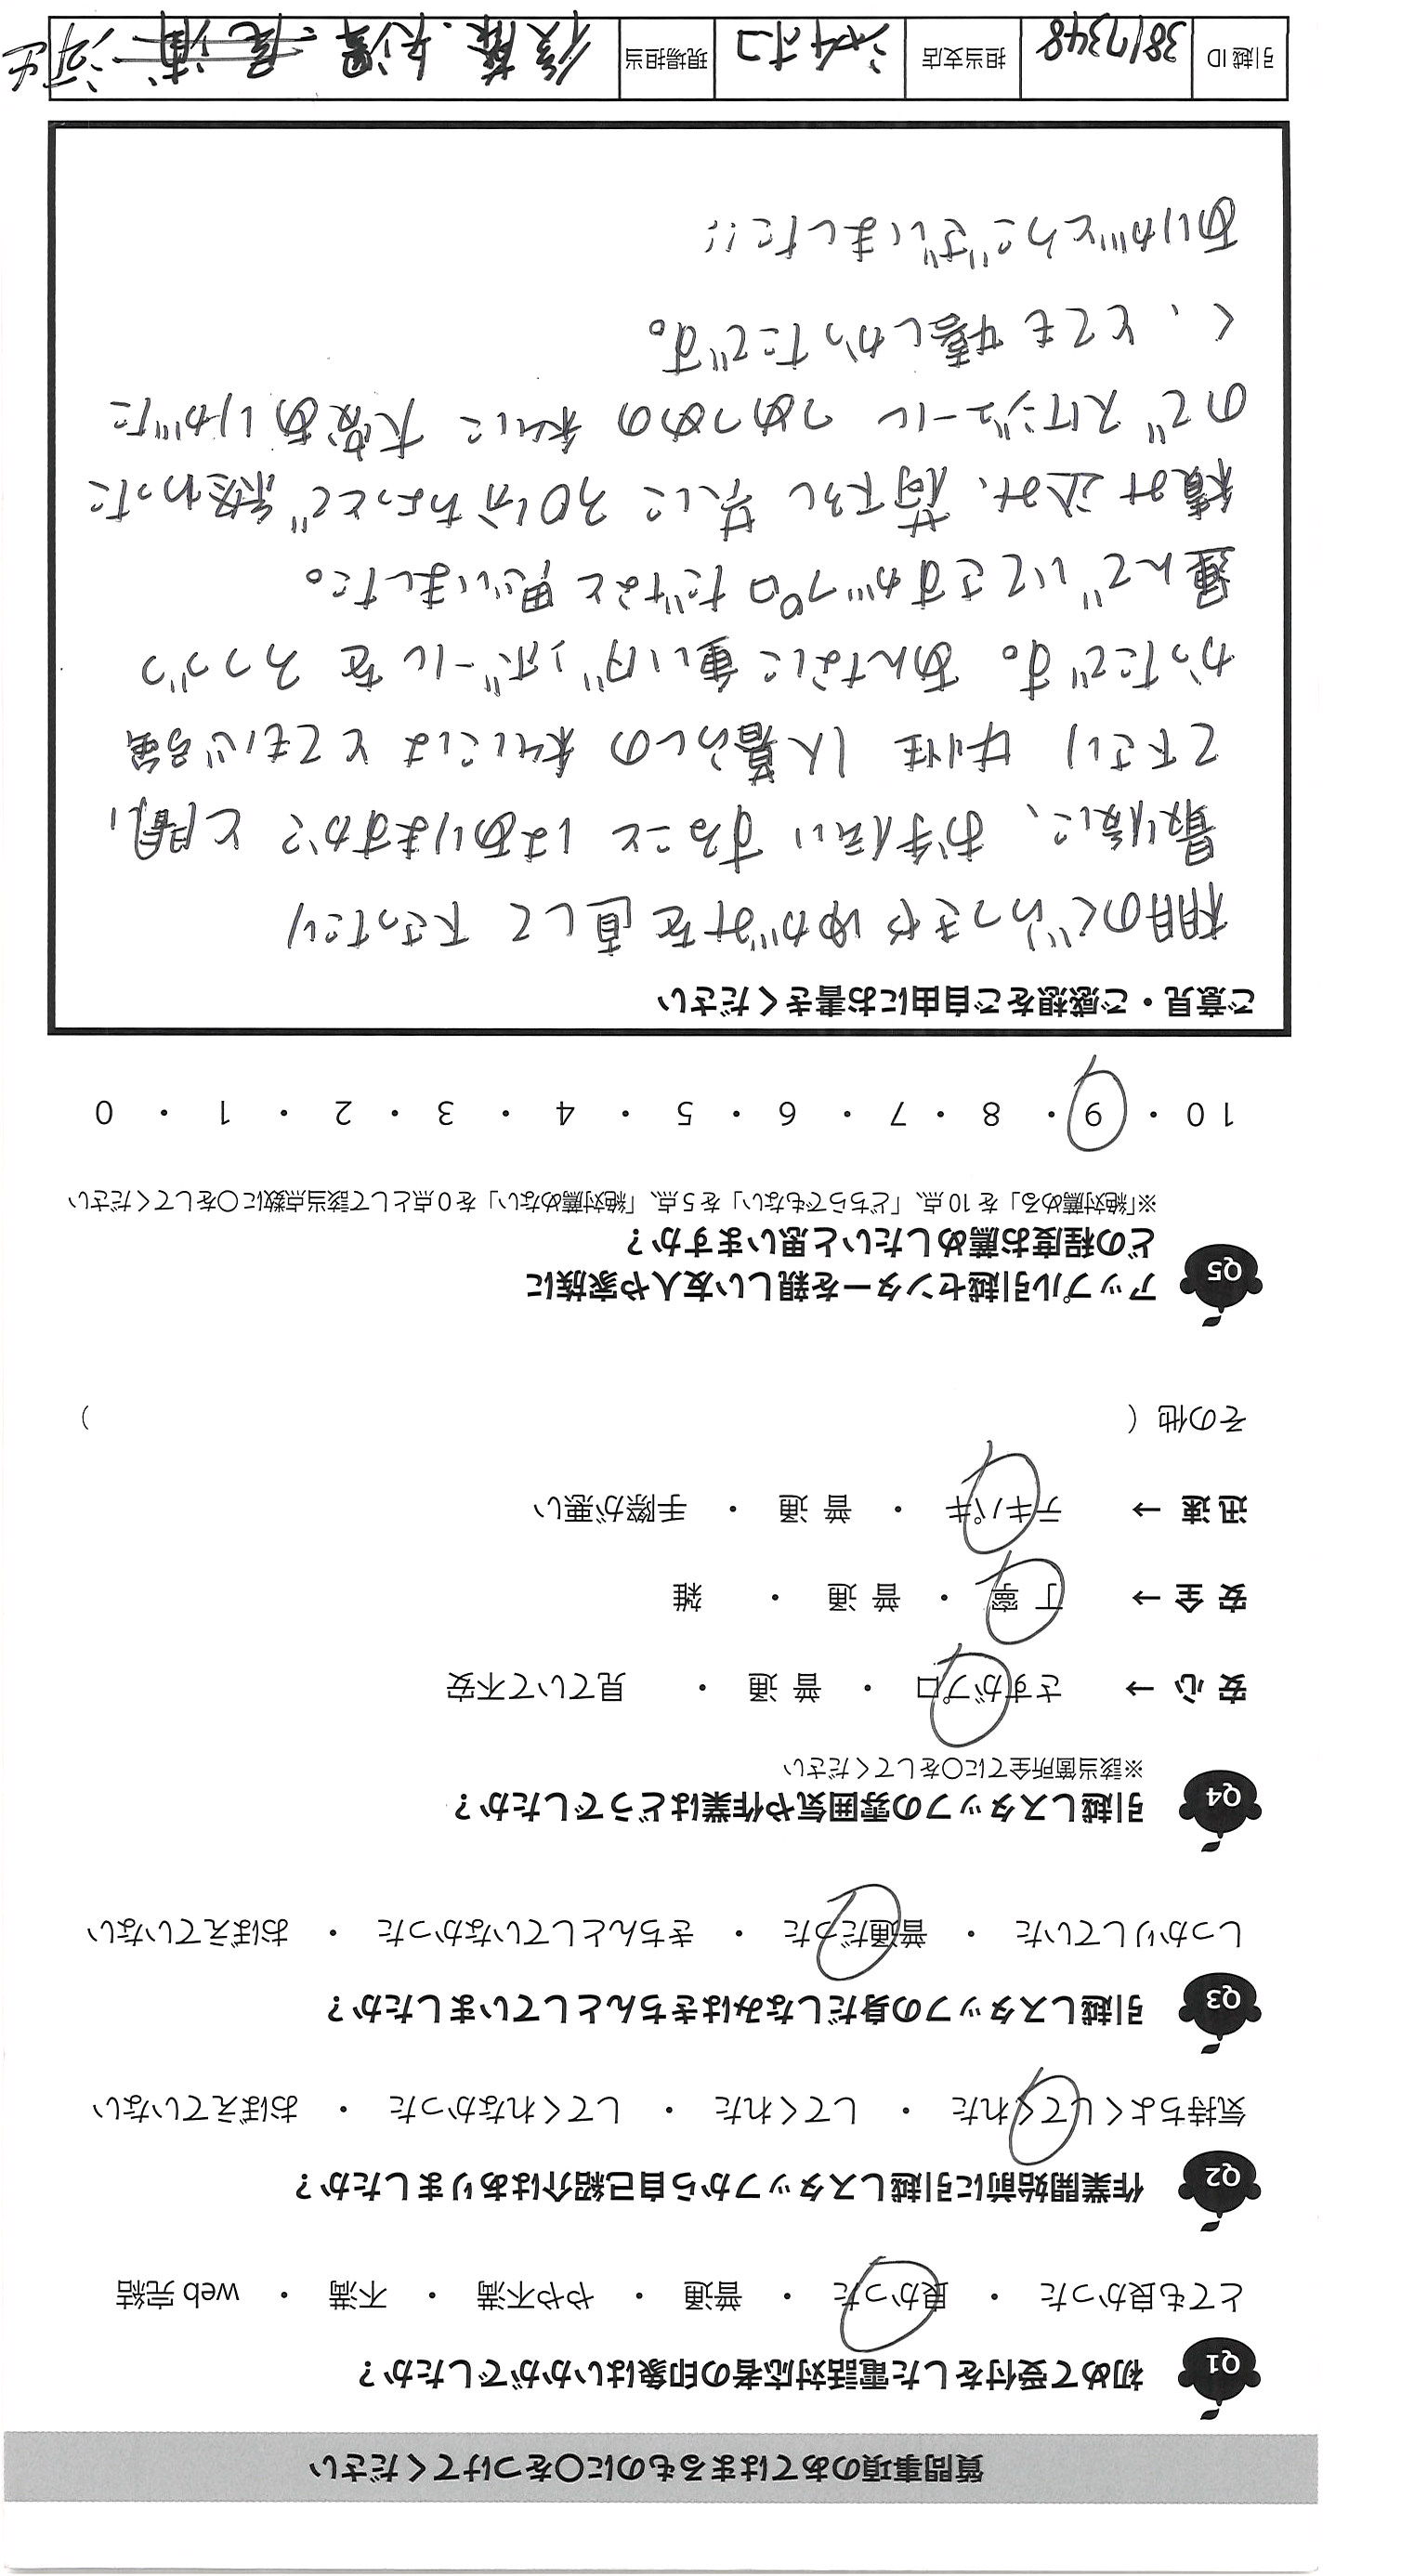 質問事項のあてはまるものに○をつけてください
Q1 初めて受付をした電話対応者の印象はいかがでしたか？
とても良かった ・ 良かった ・ 普通 ・ やや不満 ・ 不満 ・ web 完結
Q2 作業開始前に引越しスタッフから自己紹介はありましたか？
気持ちよくしてくれた ・ してくれた ・ してくれなかった ・ おぼえていない
Q3 引越しスタッフの身だしなみはきちんとしていましたか？
しっかりしていた ・ 普通だった ・ きちんとしていなかった ・ おぼえていない
Q4 引越しスタッフの雰囲気や作業はどうでしたか？
※該当箇所全てに○をしてください
安 心 → さすがプロ ・ 普 通 ・ 見ていて不安
安 全 → 丁 寧 ・ 普 通 ・ 雑
迅 速 → テキパキ ・ 普 通 ・ 手際が悪い
その他（ ）
Q5 アップル引越センターを親しい友人や家族に
どの程度お薦めしたいと思いますか？
※「絶対薦める」を 10 点、「どちらでもない」を 5 点、「絶対薦めない」を 0 点として該当点数に○をしてください
10 ・ 9 ・ 8 ・ 7 ・ 6 ・ 5 ・ 4 ・ 3 ・ 2 ・ 1 ・ 0
ご意見・ご感想をご自由にお書きください
棚のぐらつきやゆがみを直して下さったり
最後に、お手伝いすることはありますか？と聞い
て下さり 女性1人暮らしの私にはとても心強
かったです。あんなに重いダンボールを2つづつ
運んでいてさすがプロだなと思いました。
積み込み、荷下ろし 共に30分ちょっとで終わった
のでスケジュールつめつめの私に大変ありがた
く、とても嬉しかったです。
ありがとうございました!!
引越 ID 3817348 担当支店 現場担当 後藤、